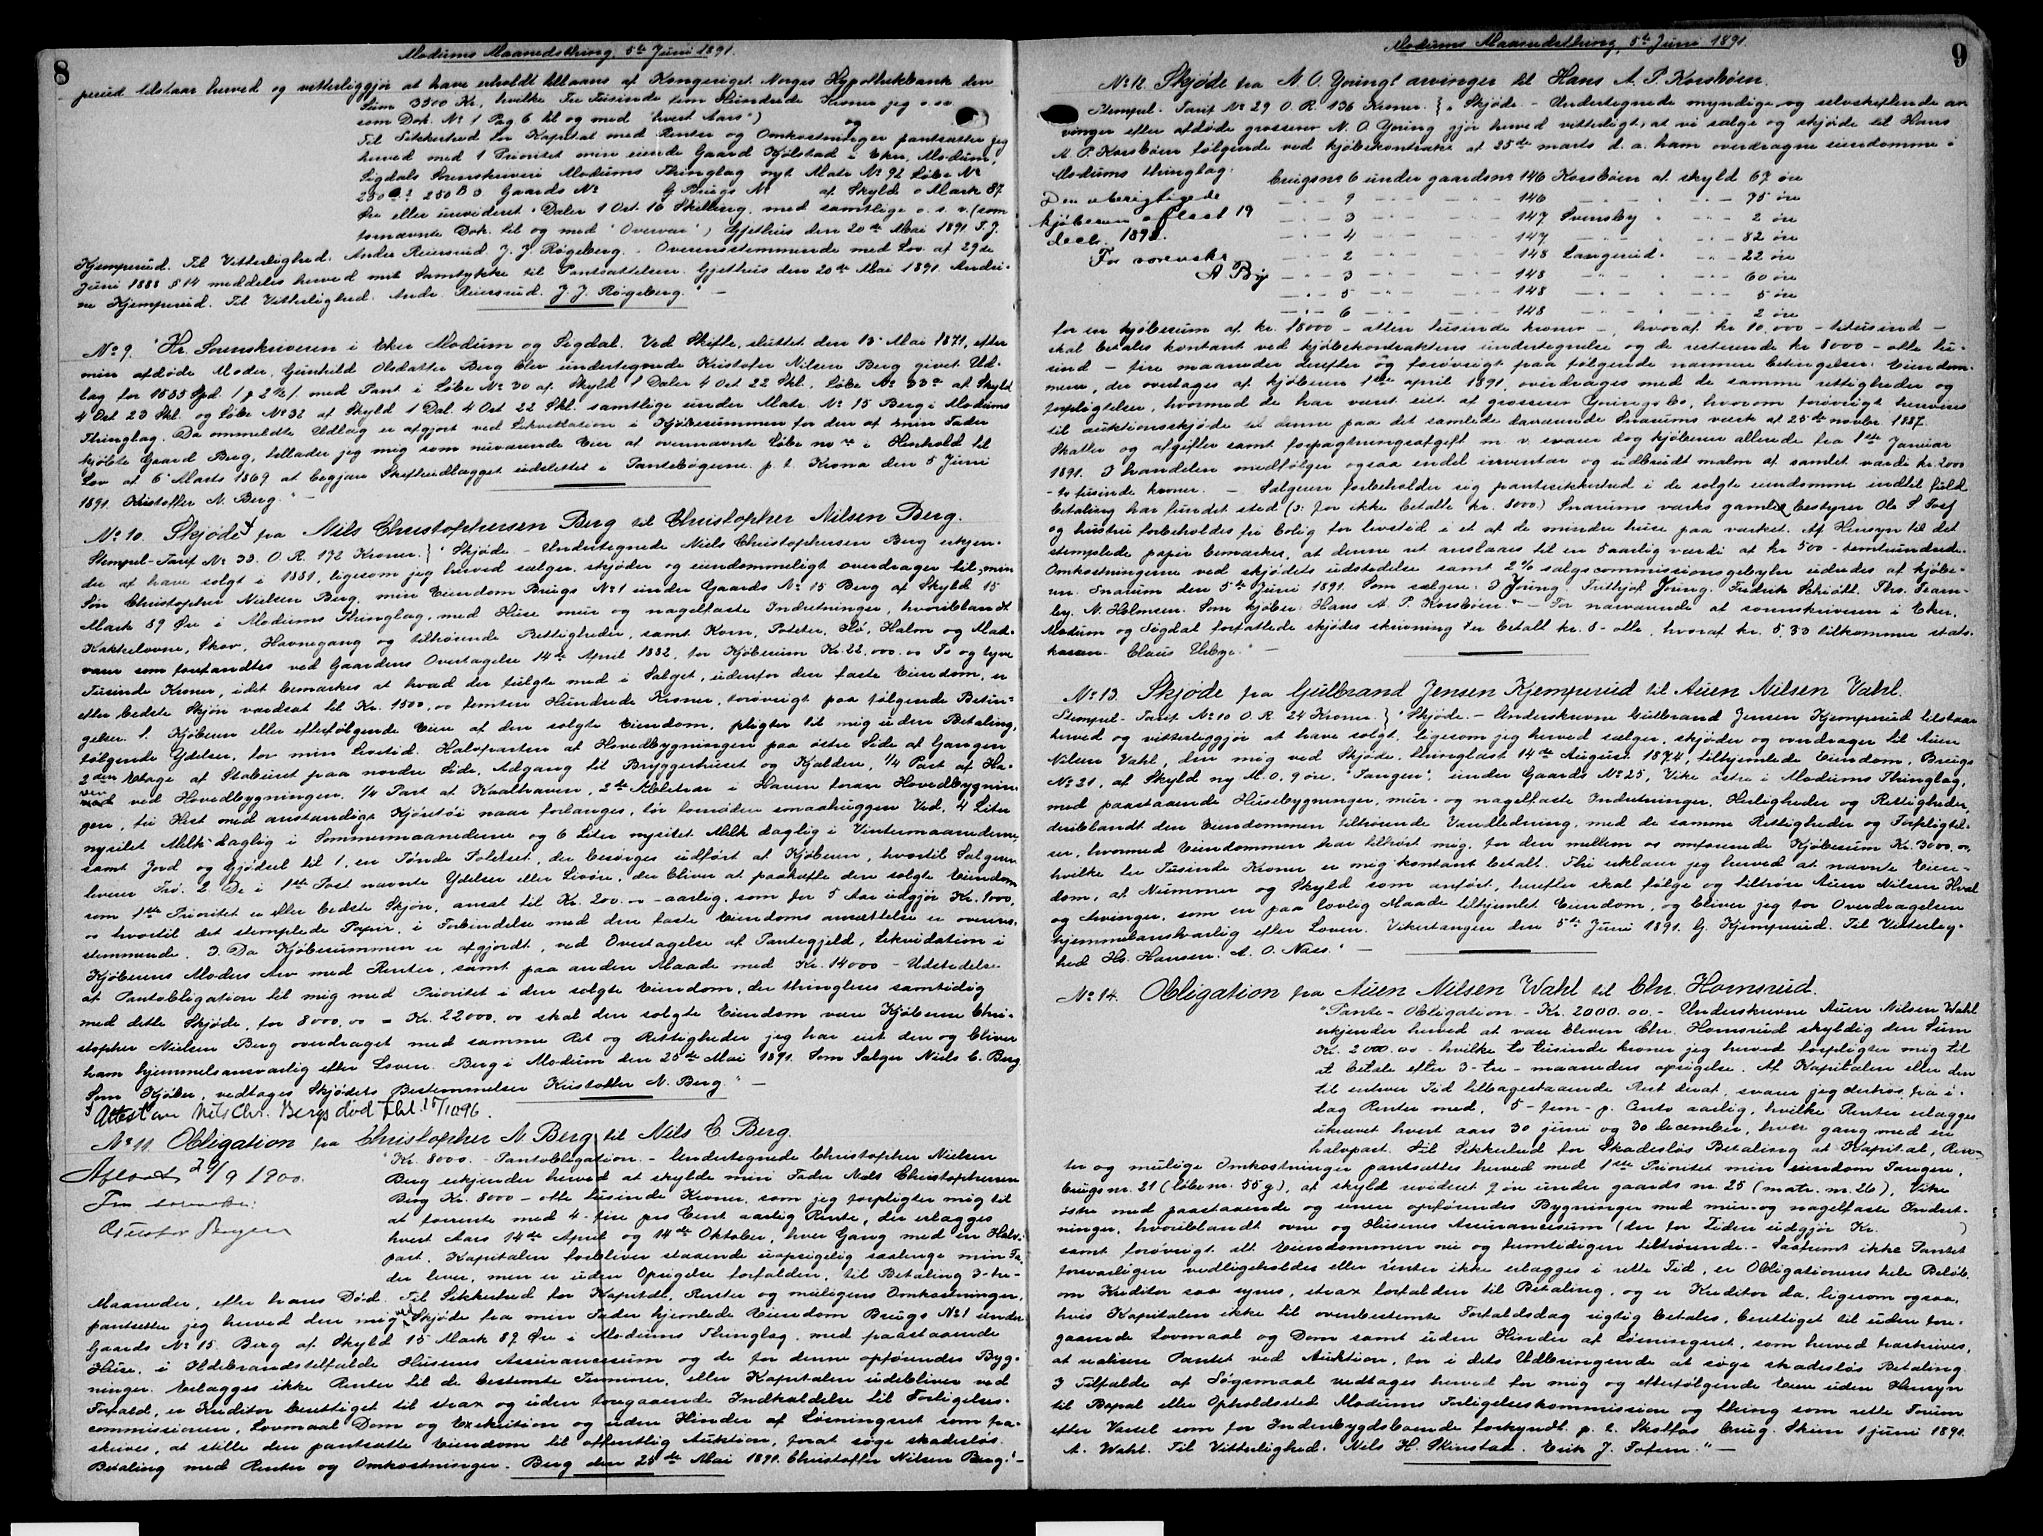 8
Modums Maanedsthing, 5te Juni 1891.
perud tilstaar herved og vitterliggjør at have erholdt tillaans af Kongeriget Norges Hypothekbank den
Sum 3500 Kr, hvilke Tre Tusinde fem Hundrede Kroner jeg o. sv
som Dok. No 1 Pag 6 til og med "hvert Aars")
og
Til Sikkerhed for Kapital med Renter og Omkostninger pantsætter jeg
herved med 1 Prioritet min eiende Gaard Kjølstad i Eker, Modum,
Sigdals Sorenskriveri Modums Thinglag nyt Matr No 92 Løbe No
250 a 2 250 B 3 Gaards No G Brugs No af Skyld 0 Mark 87
Øre eller urevideret " Daler 1 Ort 16 Skilling, med samtlige o. s. v. (som
fornævnte Dok. til og med "Overvær".) Gjethus den 20de Mai 1891. T. J.
Kjemperud. Til Vitterlighed: Anders Reiersrud J. J. Røgeberg. Overensstemmende med Lov af 29de
Juni 1888 § 14 meddeles herved mit Samtykke til Pantsættelsen. Gjethus den 20de Mai 1891. Andri-
ne Kjemperud. Til Vitterlighed. Anders Reiersrud. J. J. Røgeberg." —
No 9. "Hr. Sorenskriveren i Eker Modum og Sigdal. Ved Skifte, sluttet den 15 Mai 1871, efter
min afdøde Moder, Gunhild Olsdatter Berg blev undertegnede Kristofer Nilsen Berg givet Ud-
læg for 1535 Spd. 1 ƒ 2 ½ /. med Pant i Løbe No 30 af Skyld 1 Daler 4 Ort 22 Skl. Løbe No 33a af Skyld
4 Ort 23 Skl. og Løbe No 32 af Skyld 1 Dal. 4 Ort 22 Skl. samtlige under Matr. No 15 Berg i Modums
Thinglag. Da ommeldte Udlæg er afgjort ved Likvidation i Kjøbesummen for den af min Fader
kjøbte Gaard Berg, tillader jeg mig som nuværende Eier af ovennævnte Løbe no re i Henhold til
Lov af 6 Marts 1869 at begjære Skifteudlægget udslettet i Pantebøgerne. p. t. Krona den 5 Juni
1891. Kristoffer N. Berg." —
No 10. Skjøde fra Nils Christophersen Berg til Christopher Nilsen Berg.
Stempel-Tarif No 33. O. R. 172 Kroner. } "Skjøde — Undertegnede Niels Christophersen Berg erkjen-
der at have solgt i 1881, ligesom jeg herved sælger, skjøder og eiendommeligt overdrager til min
Søn Christopher Nielsen Berg, min Eiendom Brugs No 1 under Gaards No 15 Berg af Skyld 15
Mark 89 Øre i Modums Thinglag, med Huse mur og nagelfaste Indretninger, hvoriblandt
Kakkelovne, Skov, Havnegang og tilhørende Rettigheder, samt Korn, Poteter, Hø, Halm og Mad-
varer som forefandtes ved Gaardens Overtagelse 14de April 1882, for Kjøbesum Kr. 22,000.00 To og tyve
Tusinde Kroner, idet bemærkes at hvad der fulgte med i Salget, udenfor den faste Eiendom, er
efter bedste Skjøn værdsat til Kr. 1500,00 femten Hundrede Kroner, forøvrigt paa følgende Betin-
gelser. 1. Kjøberen eller efterfølgende Eiere af den solgte Eiendom, pligter til mig uden Betaling,
følgende Ydelser, for min Levetid. Halvparten af Hovedbygningen paa østre Side af Gangen
2den Etage af Stabburet paa nordre Side. Adgang til Bryggerhuset og Kjælderen, ¼ Part af Ha-
ven ved Hovedbygningen. ¼ Part af Kaalhaven, 2de Æbletrær i Haven foran Hovedbygnin-
gen, fri Hest med anstændigt Kjøretøi naar forlanges, tør fornøden smaahuggen Ved, 4 Liter
nysilet Melk daglig i Sommermaanederne og 6 Liter nysilet Melk daglig i Vintermaanederne,
samt Jord og Gjødsel til 1, en Tønde Potetsæt, der besørges udført af Kjøberen, hvortil Sælgeren
leverer Frø. 2. De i 1ste Post nævnte Ydelser eller Livøre, der bliver at paahefte den solgte Eiendom
som 1ste Prioritet er efter bedste Skjøn, ansat til Kr. 200.00 — aarlig, som for 5 Aar udgjør Kr. 1000,
00 hvortil det stemplede Papir, i Forbindelse med den faste Eiendoms ansættelse er overens-
stemmende. 3. Da Kjøbesummen er afgjordt, ved Overtagelse af Pantegjeld, Likvidation i
Kjøberens Moders Arv med Renter, samt paa anden Maade med Kr. 14000 — Udstedelse
af Pantobligation til mig med Prioritet i den solgte Eiendom, der thinglæses samtidig
med dette Skjøde, for 8000,00 = Kr. 22000,00 skal den solgte Eiendom være Kjøberen Chri-
stopher Nielsen Berg overdraget med samme Ret og Rettigheder jeg har eiet den og bliver
ham hjemmelsansvarlig efter Loven. Berg i Modum den 25de Mai 1891. Som Sælger Niels C. Berg
Som Kjøber, vedtages Skjødets Bestemmelser Kristoffer N. Berg." —
Attest om Nils Chr. Bergs død Thl. 15/10 96.
No 11. Obligation fra Christopher N. Berg til Nils C. Berg.
Aflæst 29/9 1900.
For sorenskr:
"Kr. 8000. — Pantobligation. — Undertegnede Christopher Nielsen
Berg erkjender herved at skylde min Fader Niels Christophersen
Berg Kr. 8000 — otte tusinde Kroner, som jeg forpligter mig til
at forrente med 4 - fire pro Cent aarlig Rente, der erlægges
hvert Aars 14de April og 14de Oktober, hver Gang med en Halv-
part. Kapitalen forbliver staaende uopsigelig saalænge min Fa-
der lever, men er uden Opsigelse forfalden, til Betaling 3 - tre -
Maaneder, efter hans Død. Til Sikkerhed for Kapital, Renter og muligens Omkostninger,
pantsætter jeg herved den mig ved Skjøde fra min Fader hjemlede Eiendom Brugs No 1 under
Gaards No 15. Berg af Skyld 15 Mark 89 Øre i Modums Thinglag, med paastaaende
Huse, i Ildebrandstilfælde Husenes Assurancesum og de for denne opførendes Byg-
ninger. Erlægges ikke Renter til de bestemte Terminer, eller Kapitalen udebliver ved
Forfald, er Kreditor berettiget til strax og uden foregaaende Indkaldelse til Forligelses-
commissionen, Lovmaal Dom og Exekution og uden Hinder af Løsningsret som fra-
skrives, at stille den pantsatte Eiendom til offentlig Auktion, forat søge skadesløs
Betaling med Renter og Omkostninger. Berg den 25de Mai 1891. Christoffer Nilsen Berg." —
9
Modums Maanedsthing, 5te Juni 1891.
No 12. Skjøde fra N. O. Youngs arvinger til Hans A. P. Korsbøen.
Stempel-Tarif No 29 O. R. 136 Kroner. } "Skjøde — Undertegnede myndige og selvskiftende ar-
vinger efter afdøde grosserer N. O. Young gjør herved vitterligt, at vi sælge og skjøde til Hans
A. P. Korsbøen følgende ved kjøbekontrakt af 25de marts d. a. ham overdragne eiendomme i
Modums thinglag:
brugsno 6 under gaardsno 146 Korsbøen af skyld 67 øre
— 9 — 146 — 75 øre
— 3 — 147 Svensby — 2 øre
— 4 — 147 — 82 øre
— 2 — 148 Langerud — 22 øre
— 3 — 148 — 60 øre
— 5 — 148 — 5 øre
— 6 — 148 — 2 øre
Den uberigtigede
kjøbesum aflæst 19
decb. 1892.
For sorenskr.
A By
for en kjøbesum af kr. 18000 — atten tusinde kroner —, hvoraf kr 10,000 — titusind —
skal betales kontant ved kjøbekontraktens undertegnelse og de resterende kr 8000 — otte tu-
sind — fire maaneder derefter og forøvrigt paa følgende nærmere betingelser: Eiendom-
mene, der overtages af kjøberen 1ste april 1891, overdrages med de samme rettigheder og
forpligtelser, hvormed de har været eiet af grosserer Youngs bo, hvorom forøvrigt henvises
til auktionsskjøde til denne paa det samlede daværende Snarums værk af 25de novbr 1887.
Skatter og afgifter samt forpagtningsafgift m v. svarer dog kjøberen allerede fra 1ste Januar
1891. I handelen medfølger ogsaa endel inventar og udbrudt malm af samlet værdi kr. 2000
- to tusinde kroner. — Sælgeren forbeholder sig pantesikkerhed i de solgte eiendomme indtil fuld
betaling har fundet sted (ɔ: for ikke betalte kr. 8000.) Snarums værks gamle bestyrer Ole S
og hustru forbeholdes fri bolig for livstid i et af de mindre huse paa værket. Af Hensyn til det
stemplede papir bemærkes, at denne ret anslaaes til en 5aarlig værdi af kr 500 - femhundrede.
Omkostningerne ved skjødets udstedelse samt 2% salgscommissionsgebyr udredes af kjøbe-
ren. Snarum den 5te Juni 1891. Som sælgere: J Young. Frithjof Young. Fredrik Schiøtt. Ths. Fearn-
ley. N. Holmsen. Som kjøber: Hans A. P. Korsbøen. — For nærværende af sorenskriveren i Eker,
Modum og Sigdal forfattede skjødes skrivning er betalt kr. 8 - otte, hvoraf kr. 5,33 tilkommer stats-
kassen. Claus Urbye." —
No 13. Skjøde fra Gulbrand Jensen Kjemperud til Auen Nilsen Vahl.
Stempel-Tarif No 10 O. R. 24 Kroner. } "Skjøde. — Underskrevne Gulbrand Jensen Kjemperud tilstaar
herved og vitterliggjør at have solgt, ligesom jeg herved sælger, skjøder og overdrager til Auen
Nilsen Vahl, den mig ved Skjøde, thinglæst 14de August 1874, tilhjemlede Eiendom, Brugs
No 21, af Skyld ny M. 0, 9 øre, "Tangen", under Gaards No 25, Vike østre i Modums Thinglag,
med paastaaende Husebygninger, mur- og nagelfaste Indretninger, Herligheder og Rettigheder,
deriblandt den Eiendommen tilhørende Vandledning, med de samme Rettigheder og Forpligtel-
ser, hvormed Eiendommen har tilhørt mig, for den mellem os omforenede Kjøbesum Kr. 3000.00,
hvilke tre Tusinde Kroner er mig kontant betalt. Thi erklærer jeg herved at nævnte Eien-
dom, af Nummer og Skyld som anført, herefter skal følge og tilhøre Auen Nilsen Hval
og Arvinger, som en paa lovlig Maade tilhjemlet Eiendom, og bliver jeg for Overdragelsen
hjemmelansvarlig efter Loven. Vikertangen den 5te Juni 1891. G. Kjemperud. Til Vitterlig-
hed Hs. Hansen. A. O. Næss." —
No 14. Obligation fra Auen Nilsen Wahl til Chr. Hornsrud.
"Pante-Obligation. — Kr. 2000.00. — Underskrevne Auen Nilsen Wahl
erkjender herved at være bleven Chr. Hornsrud skyldig den Sum
Kr. 2000.00 - hvilke to tusinde kroner jeg herved forpligter mig til
at betale efter 3 - tre - maaneders opsigelse. Af Kapitalen eller den
til enhver Tid tilbagestaaende Rest deraf, svarer jeg derhos fra i-
dag Renter med, 5 - fem - p. Cento aarlig, hvilke Renter erlægges
ukrævet hvert aars 30 juni og 30 december, hver gang med en
halvpart. Til Sikkerhed for Skadesløs Betaling af Kapital, Ren-
ter og mulige Omkostninger pantsættes herved med 1ste Prioritet min eiendom Tangen,
brugsnr. 21 (løbenr. 55 g), af skyld revideret 9 øre under gaards nr. 25 (matr. nr. 26), Vike
østre med paastaaende og senere opførendes Bygninger med mur- og nagelfaste Indret-
ninger, hvoriblandt ovne og Husenes Assurancesum (der for Tiden udgjør Kr. )
samt forøvrigt alt Eiendommen nu og fremtidigen tilhørende. — Saafremt ikke Pantet
forsvarligen vedligeholdes eller Renter ikke erlægges i rette Tid, er Obligationens hele Beløb,
om Kreditor saa synes, strax forfalden til Betaling, og er Kreditor da, ligesom ogsaa,
hvis Kapitalen ikke til ovenbestemte Forfaldsdag rigtig betales, berettiget til uden fore-
gaaende Lovmaal og Dom samt uden Hinder af Løsningsret, som herved fraskrives,
at realisere Pantet ved Auktion, for i dets Udbringende at søge skadesløs Betaling.
I Tilfælde af Søgsmaal vedtages herved for mig og efterfølgende Eiere uden Hensyn
til Bopæl eller Opholdssted Modums Forligelseskommission og thing som rette Forum
efter Varsel som for Indenbygdsboende forkyndt. p. t. Skotfos brug. Skien 1 juni 1891.
A. Wahl. Til Vitterlighed: Nils H. Skinstad. Erik J. Tofsen." —